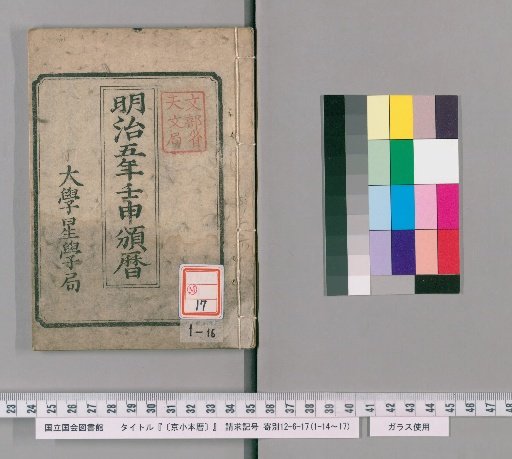 文部省
天文局
明治五年壬申頒暦
大學星學局
17
1-16
23 24 25 26 27 28 29 30 31 32 33 34 35 36 37 38 39 40 41 42 43 44 45 46 47 48
国立国会図書館 タイトル『〔京小本暦〕』 請求記号 寄別12-6-17(1-14~17) ガラス使用